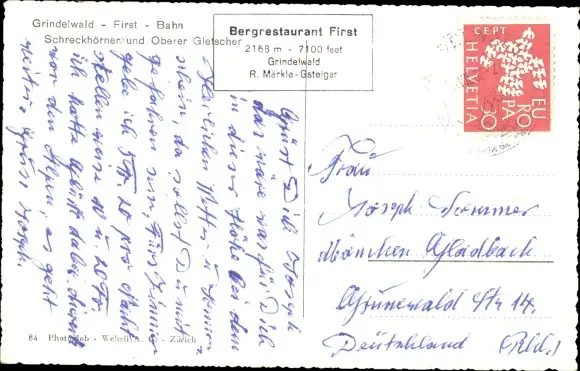 Grindelwald - First - Bahn
Schreckhörner und Oberer Gletscher
Bergrestaurant First
2168 m - 7100 feet
Grindelwald
R. Märkle-Gsteiger
CEPT
HELVETIA
30
EUROPA
Grüß Dich Joseph
das wäre was für Dich
in dieser Höhe bei dem
herrlichen Wetter u. Sonnen-
schein, da sollst Du mit
gefahren sein, fürs Zimmer
gebe ich 20 pro Nacht
stellenweise 10 u. 20 Fr.
ich hatte Glück dabei
von den Alpen, es geht
weiter Gruss Joseph.
Frau
Joseph Sommer
München Gladbach
Grunewald Str 14.
Deutschland (Rhld.)
84 Photoglob - Wehrli A. G. - Zürich